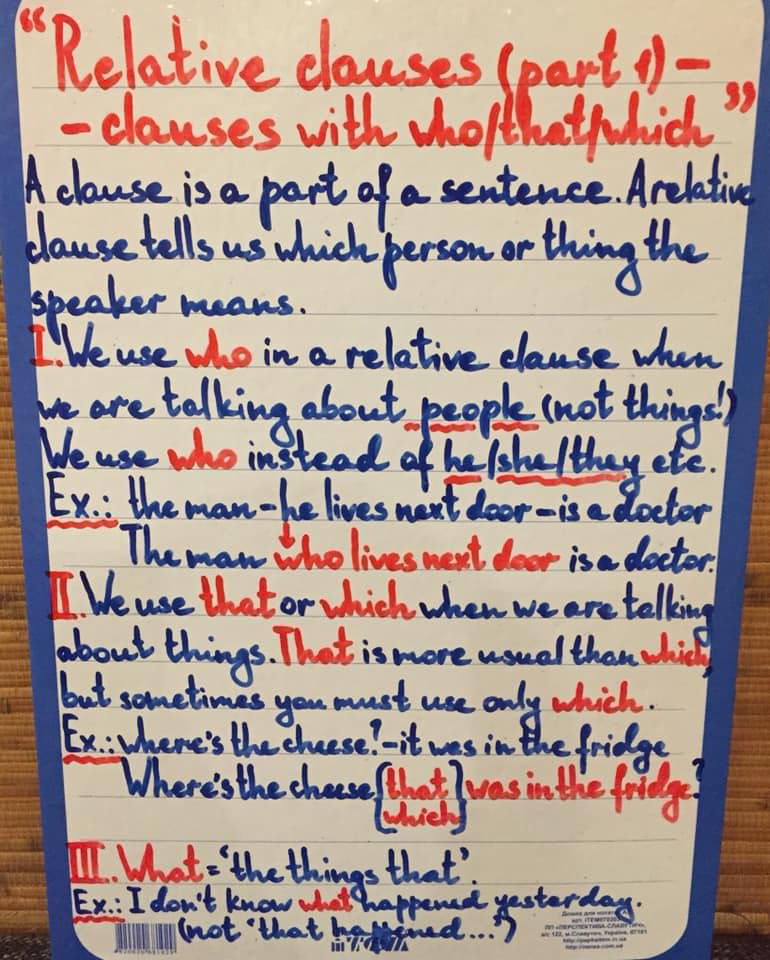 “Relative clauses (part 1) –
– clauses with who/that/which”
A clause is a part of a sentence. A relative
clause tells us which person or thing the
speaker means.
I. We use who in a relative clause when
we are talking about people (not things!)
We use who instead of he/she/they etc.
Ex.: the man – he lives next door – is a doctor
The man who lives next door is a doctor.
II. We use that or which when we are talking
about things. That is more usual than which,
but sometimes you must use only which.
Ex.: where's the cheese? – it was in the fridge
Where's the cheese [that] was in the fridge?
[which]
III. What = ‘the things that’.
Ex.: I don't know what happened yesterday.
(not ‘that happened...’)
Дошка для нотаток
ПП «ПЕРСПЕКТИВА-СЛАВУТИЧ»
а/с 122, м.Славутич, Україна, 07101